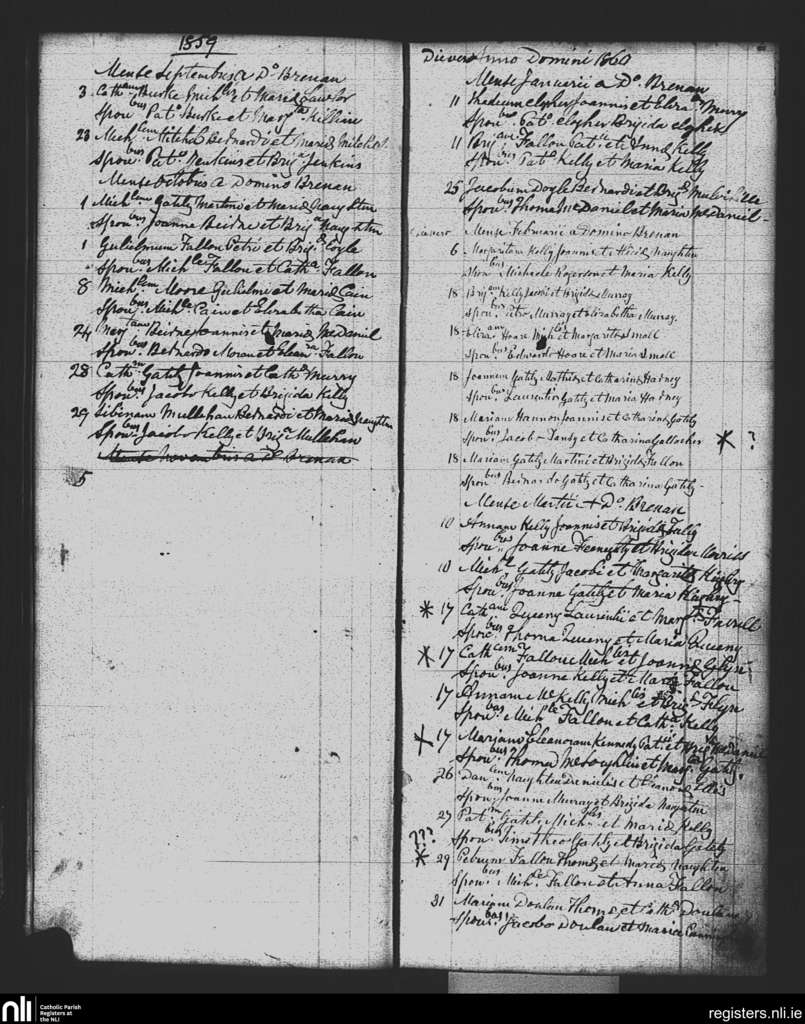 1859
Mense Septembus a Do. Brenan
3 Catham Burke Michlis et Maria Lawlor
Sponbus Pato. Burke et Margta Killian
23 Michlem Mitchel Bernardi et Maria Mitchel
Sponbus Pato. Jenkins et Briga. Jenkins
Mense Octobus a Domino Brenan
1 Michlem Gately Martini et Maria Naughten
Sponbus Joanne Beirne et Briga Naughten
1 Gulielmum Fallon Petri et Brigd Coyle
Sponbus Michle Fallon et Catha. Fallon
8 Michlem Moore Gulielmi et Maria Cain
Sponbus Michle Cain et Elizabetha Cain
24 Margtam Beirne Joannis et Maria McDaniel
Sponbus Bernardo Moran et Eleanra Fallon
28 Catham Gately Joannis et Catha Murry
Sponbus Jacobo Kelly et Brigida Kelly
29 Mullehan Bernardi et Maria Naughten
Sponbus Jacobo Kelly et Briga Mullehan
Mense Novembus a Do Brenan
5
Anno Domini 1860
Mense Januarii a Do. Brenan
11 Joannis et Eliza Murry
Sponbus Pato. Brigida
11 Brigam Fallon Patcii et Anna Kelly
Sponbus Pato. Kelly et Maria Kelly
25 Jacobum Doyle Bernardi et Brigd
Sponbus Thoma McDaniel et Maria McDaniel
Mense Februarii a Domino Brenan
6 Margaritam Kelly Joannis et Naughten
Sponbus Michaele et Maria Kelly
18 Brigam Kelly Jacobi et Brigida Murray
Sponbus Petro Murray et Elizabetha Murray
18 Elizam Hoare Michlis et Margarita Small
Sponbus Edward Hoare et Maria Small
18 Joannem Gately Mathei et Catharina Harney
Sponbus Laurentio Gately et Maria Harney
18 Mariam Hannon Joannis et Catharina Gately
Sponbus Jacobo et Catharina Gallacher * ?
18 Mariam Gately Martini et Brigida Fallon
Sponbus Bernardo Gately et Catharina Gately
Mense Martii a Do. Brenan
10 Annam Kelly Joannis et Brigida
Sponbus Joanne et Brigida Morriss
10 Michl Gately Jacobi et Margarita
Sponbus Joanne Gately et Maria
* 17 Catham Queeny Laurentii et Margta Farrell
Sponbus Thoma Queeny et Maria Queeny
* 17 Cath Fallon Michlis et Joanna
Sponbus Joanne Kelly et Maria Fallon
17 Annam McKelly Michlis et Brigd Flyn
Sponbus Michle Fallon et Catha Kelly
* 17 Mariam Eleanoram Kennedy Patcii et McDaniel
Sponbus Thoma McLoughlin et Margta Gately
26 Danlem Naughten et Eleanora
Sponbus Joanne Murray et Brigida Naughten
27 Patm Gately Michlis et Maria Kelly
??? Sponbus Timotheo Gately et Brigida Gately
* 29 Petrum Fallon Thoma et Maria Naughten
Sponbus Michle Fallon et Anna Fallon
31 Mariam Doulan Thoma et Catha Doulan
Sponbus Jacobo Doulan et Maria
nli
Catholic Parish
Registers at
the NLI
registers.nli.ie